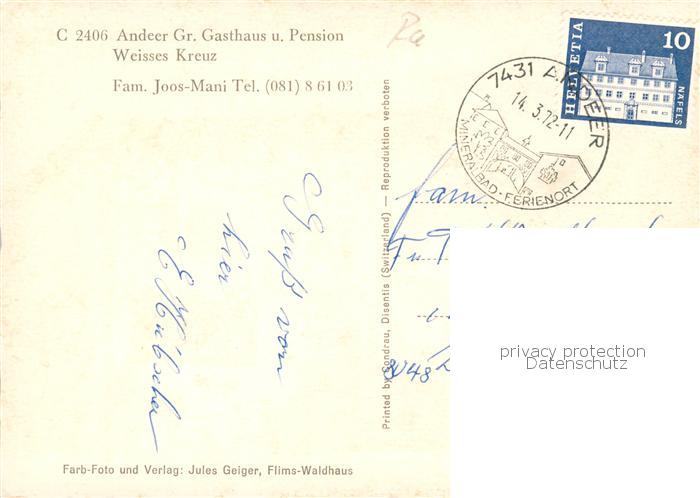 C 2406 Andeer Gr. Gasthaus u. Pension
Weisses Kreuz
Fam. Joos-Mani Tel. (081) 8 61 03
HELVETIA
10
NÄFELS
7431 ANDEER
14.3.72-11
MINERALBAD-FERIENORT
Printed by Condrau, Disentis (Switzerland) — Reproduktion verboten
Gruß von
hier
Fam.
privacy protection
Datenschutz
Farb-Foto und Verlag: Jules Geiger, Flims-Waldhaus